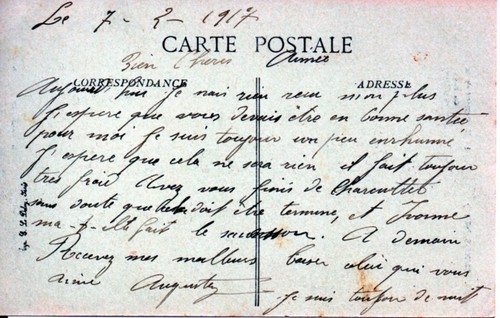 Le 7-2-1917
CARTE POSTALE
Bien Cheris Aimée
CORRESPONDANCE ADRESSE
Aujourd je nais rien reçu non plus
J'espere que vous devais être en bonne santée
pour moi Je suis toujour un peu enrhumé
J'espere que cela ne sera rien il fait toujour
tres froid Avez vous finis de Charcutter
sans doute que doit être terminé, et Ivonne
ma-t-elle fait le A demain
Recevez mes meilleurs baiser celui qui vous
aime Auguste
Je suis toujour de nuit